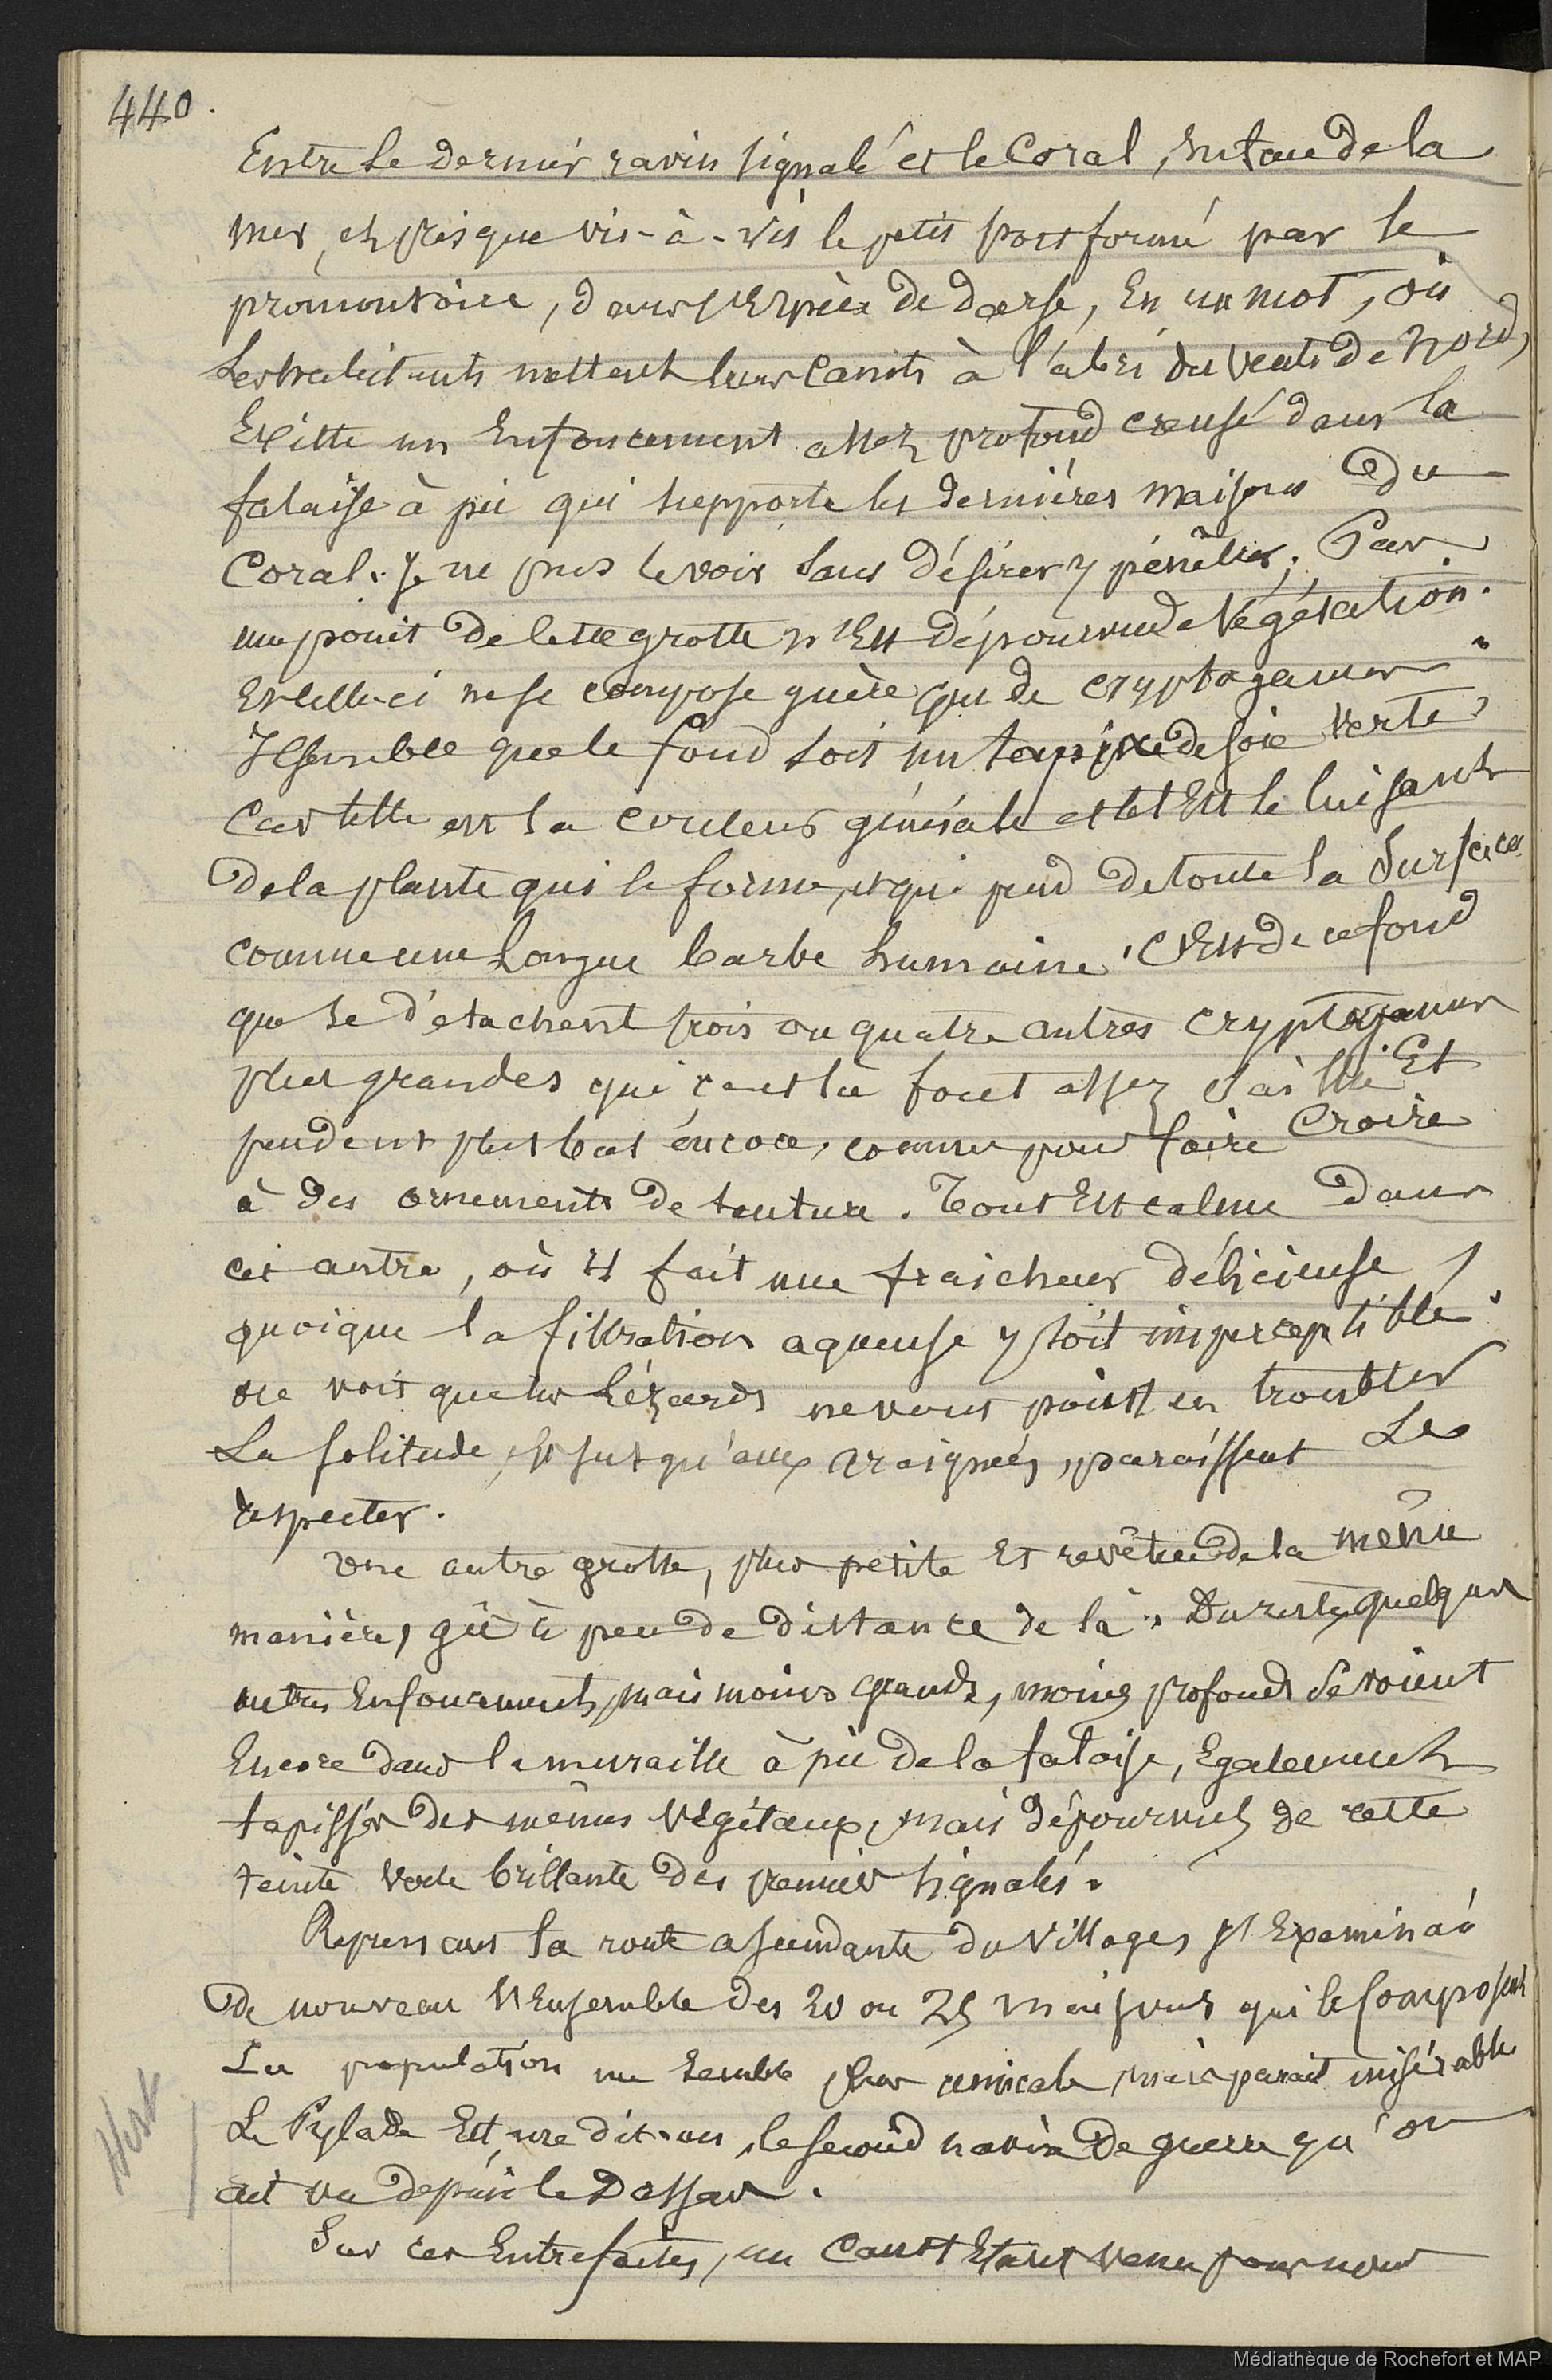 440.
Entre le dernier ravin signalé et le Coral, sur la
mer, et presque vis-à-vis le petit port formé par le
promontoire, dans l'Espèce de darse, En un mot, où
les habitants mettent leurs canots à l'abri du vents de nord,
Existe un Enfoncement assez profond creusé dans la
falaise à pic qui supporte les dernières maisons du
Coral. Je ne pus le voir sans désirer y pénêtrer; Pas
un point de cette grotte n'Est dépourvu de Végétation.
Et celle-ci ne se compose guère que de cryptogames.
Il semble que le fond soit un tapis de soie verte,
Car telle est la couleur générale et tel Est le luisant
de la plante qui le forme, et qui pend de toute la Surface
comme une longue barbe humaine. C'Est de ce fond
que se détachent trois ou quatre autres cryptogames
plus grandes qui çà et là font assez saillie Et
pendent plus bas encore, comme pour faire Croire
à des ornements de tenture. Tout Est calme dans
cet antre, où il fait une fraicheur délicieuse,
quoique la filtration aqueuse y soit imperceptible.
on voit que les lézards ne vont point en troubler
La solitude, et jusqu'aux araignées, paraissent Les
respecter.
Une autre grotte, plus petite Et revêtue de la même
manière, gît à peu de distance de là. Du reste, quelques
autres Enfoncements, mais moins grands, moins profonds se voient
Encore dans la muraille à pic de la falaise, Egalement
tapissés des mêmes Végétaux, mais dépourvus de cette
teinte verte brillante des premiers signalés.
Reprenant la route ascendante du Village, j'Examinai
de nouveau l'Ensemble des 20 ou 25 maisons qui le composent
La population me semble plus amicale, mais parait misérable
Le Pylade Est, me dit-on, le second navire de guerre qu'on
ait vu depuis le Dassas.
Sur ces Entrefaites, un Canot Etant venu pour nous
Hist
Médiathèque de Rochefort et MAP